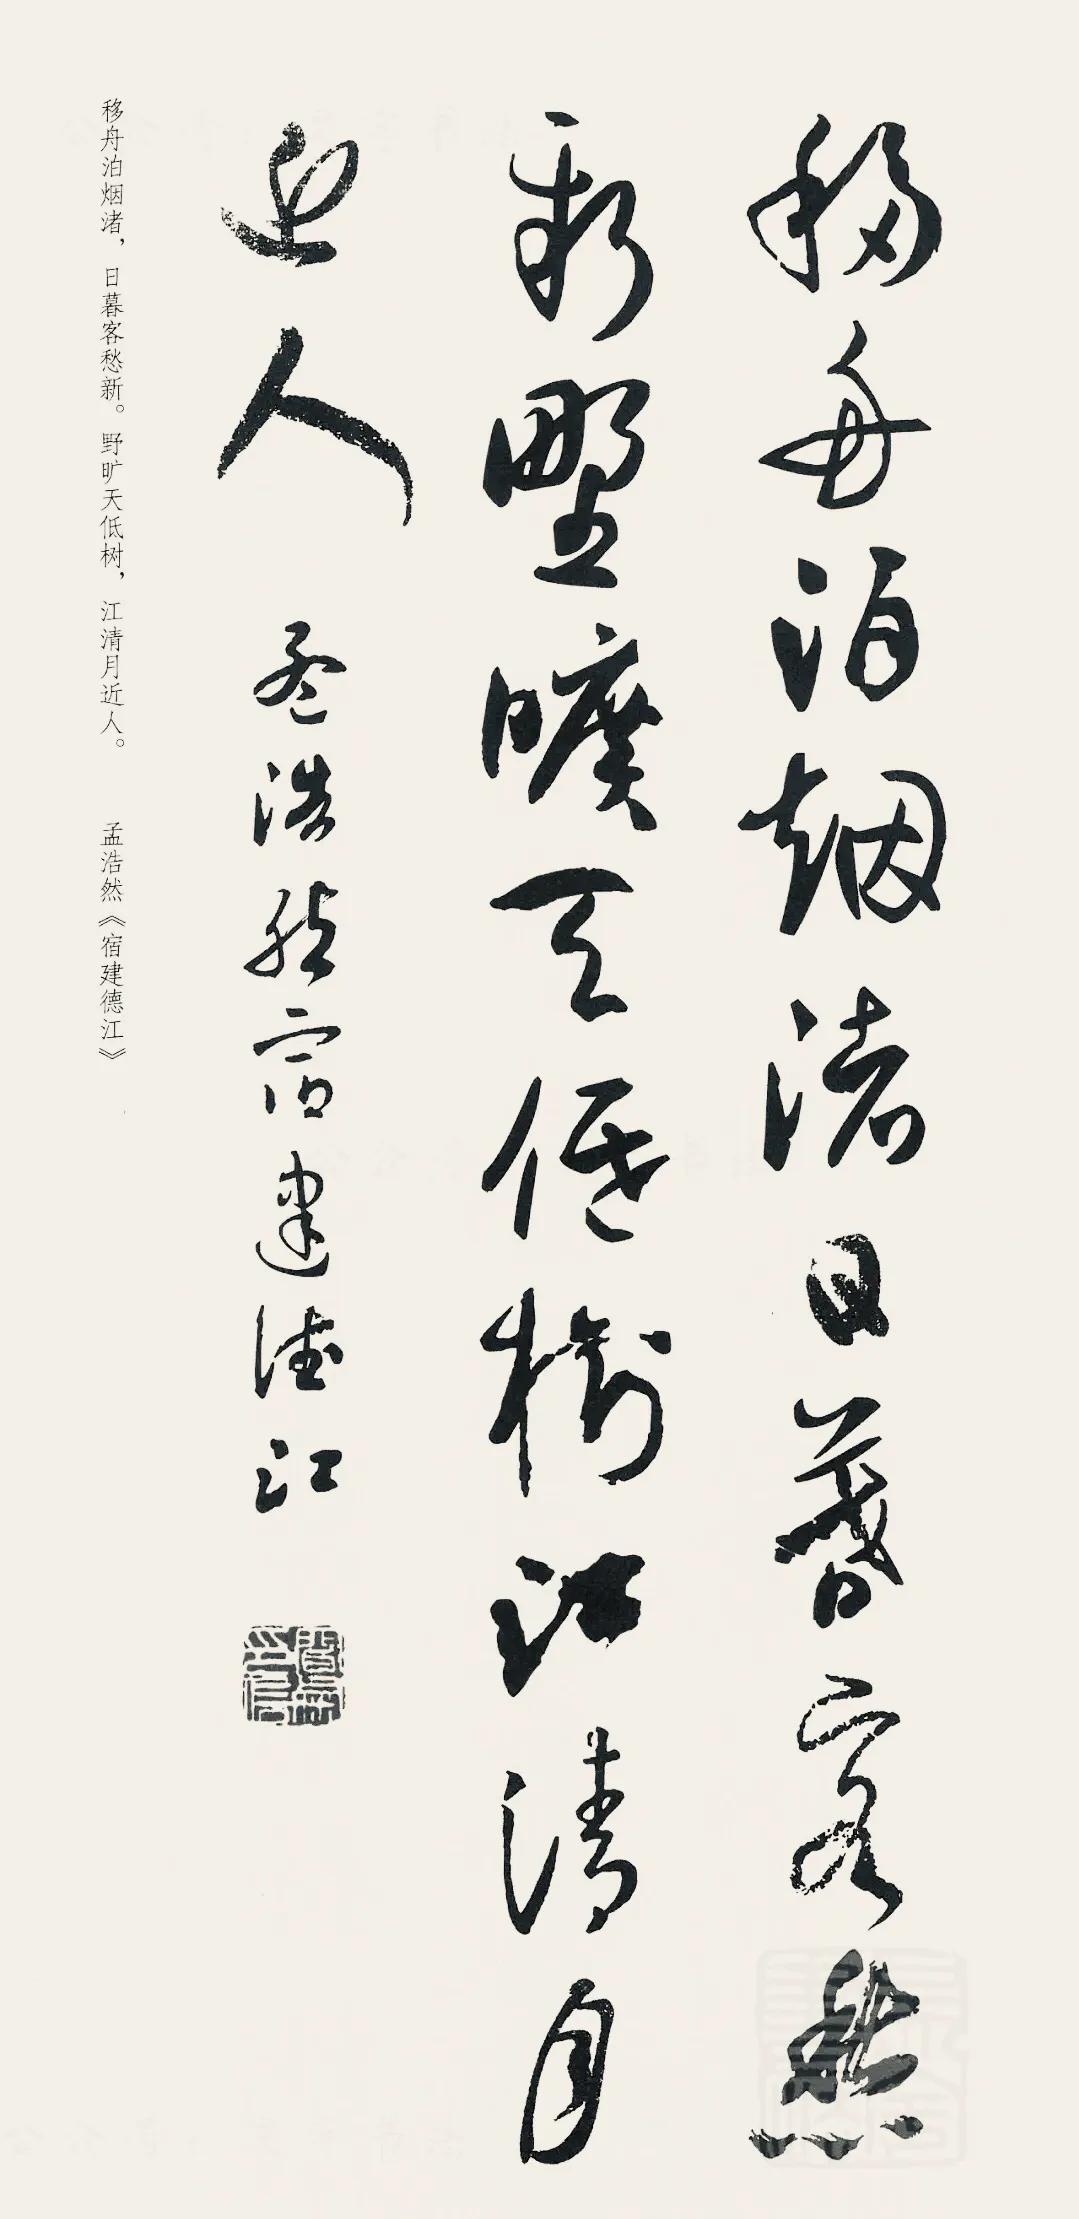 移舟泊烟渚日暮客愁
新野曠天低樹江清月
近人
孟浩然宿建德江
移舟泊烟渚，日暮客愁新。野旷天低树，江清月近人。 孟浩然《宿建德江》